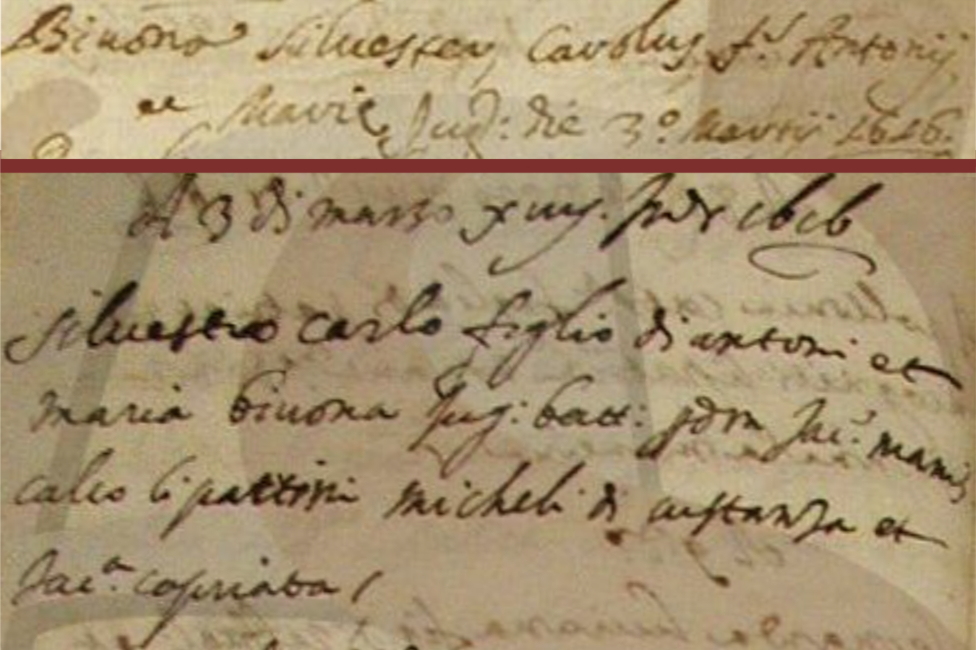 Biuona Siluester Carolus f.s Antonij
et Marie Jug: die 3.º Martij 1616.
A 3 di marzo xiiij. Ind. 1616
Siluestro carlo figlio di antoni et
maria biuona Jug: batt: p don Jac.º manis
calco li pattini micheli di custanza et
Jac.a copriata /